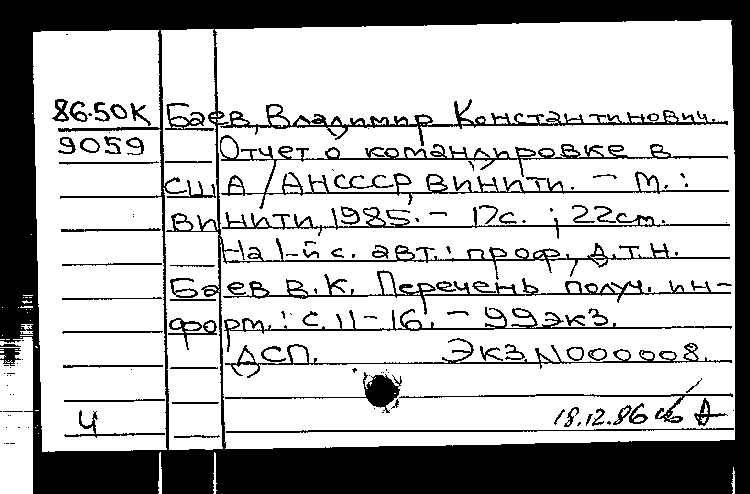 86-50К Баев, Владимир Константинович.
9059 Отчет о командировке в
США / АНСССР, ВИНИТИ. - М.:
ВИНИТИ, 1985. - 17с. ; 22см.
На 1-й с. авт.: проф., д.т.н.
Баев В.К. Перечень получ. ин-
форм.: с. 11-16. - 99экз.
ДСП. Экз. N000008.
Ч 18.12.86